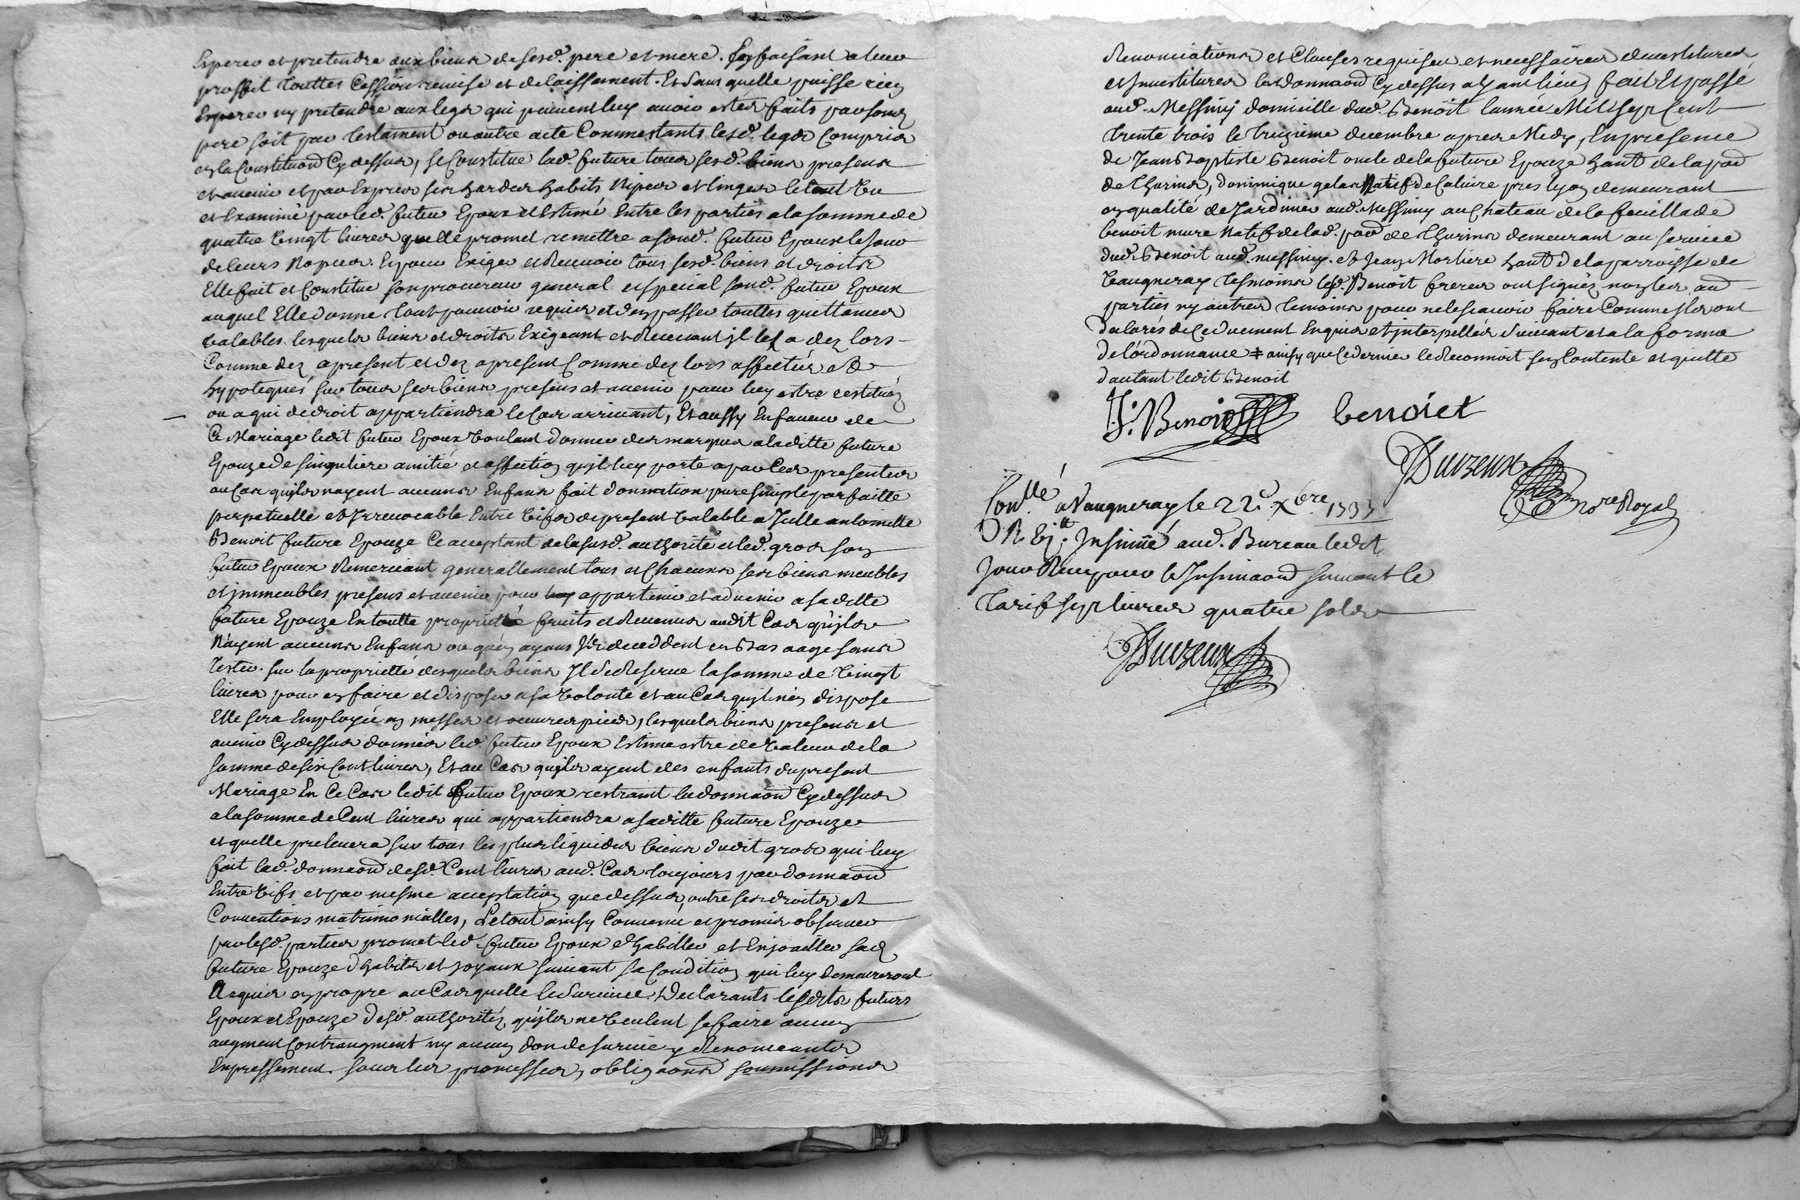 Esperer et pretendre aux biens de sesd. pere et mere. Luy faisant a leur
proffit touttes Cession remise et delaissement. Et sans quelle puisse rien
Esperer ny pretendre aux legs qui peuvent luy avoir estes faits par sond.
pere soit par testament ou autre acte Comme estants lesd. legs Compris
en la Constituon Cydessus, se Constitue lad. future tous sesd. biens presens
et avenir et par Exprés ses hardes habits Nipes et linges le tout Vu
et Examiné par led. futur Epoux et Estimé Entre les parties a la somme de
quatre Vingt livres quelle promet remettre a sond. futur Epoux le jour
de leurs Nopces. Et pour Exiger et Recevoir tous sesd. biens et droits
Elle fait et Constitue son procureur general et special sond. futur Epoux
auquel Elle donne tout pouvoir requis et den passer touttes quittances
Valables lesquels biens et droits Exigeant et Recevant jl les a dez lors
Comme dez apresent et dez apresent Comme dez lors affectés et
hypotequés sur tous ses biens presens et avenir pour luy estre restitués
ou a qui de droit appartiendra le Cas arrivant, Et aussy En faveur de
Ce Mariage ledit futur Epoux Voulant donner des marques a laditte future
Epouze de singuliere amitié et affection qujl luy porte a par Ces presentes
au Cas qujls nayent aucuns Enfans fait donnation pure simple parfaitte
perpetuelle et Jrrevocable Entre Vifs des present Valable a Julle antoinette
Benoit future Epouze Ce acceptant de la susd. authorité et led. gros son
futur Epoux Remerciant generallement tous et Chacuns ses biens meubles
et immeubles presens et avenir pour appartenir et advenir a saditte
future Epouze En toutte proprieté fruits et Revenus audit Cas qujls
Nayent aucuns Enfans ou quen ayans Jls deceddent en bas aage sans
tester. Sur la proprietté desquels biens Jl se Reserve la somme de Vingt
livres pour en faire et disposer a sa Volonté et au Cas qujl nen dispose
Elle sera Employée en messes et oeuvres pies, lesquels biens presens et
avenir Cydessus donnés led. futur Epoux Estime estre de Valeur de la
somme de six Cent livres, Et au Cas qujls ayent des enfants du present
Mariage En Ce Cas ledit futur Epoux restraint la donnaon Cydessus
a la somme de Cent livres qui appartiendra a saditte future Epouze
et quelle prelevera sur tous les plus liquides biens dudit gros qui luy
fait lad. donnaon desd. Cent livres aud. Cas toujours par donnaon
Entre Vifs et par mesme acceptation que dessus, outre ses droits et
Conventions matrimonialles, Le tout ainsy Convenu et promis observer
par lesd. parties promet led. futur Epoux dhabiller et Enjoailler sad.
future Epouze dhabits et joyaux suivant sa Condition qui luy demeureront
Acquis en propre au Cas quelle le survive. Declarants lesdits futurs
Epoux et Epouze desd. authorités qujls ne Veulent se faire aucun
augment Contraugment ny aucun don de survie y Renonceants
Expressement. Sous les promesses, obligaons soumissions
Renonciations et Clauses requises et necessaires devestitures
et Investitures la donnaon Cydessus ayant lieu, fait Et passé
aud. Messimy domicille dud. Benoit lannée Mil sept Cent
trente trois le treizieme decembre apres Midy, En presence
de Jean Baptiste Benoit oncle de la future Epouze habt de la parr
de Thurins, dominique gelas Natif de Caluire pres lyon demeurant
en qualité de Jardinier aud. Messimy au Chateau de la feuillade
benoit mure Natif de lad. parr de Thurins demeurant au service
dud. Benoit aud. messimy. et Jean Morliere habt de la parroisse de
Vaugneray tesmoins lesd. Benoit freres ont signés non les aud
parties ny autres temoins pour ne le scavoir faire Comme Jls ont
declarés de Ce duement Enquis et Interpellés suivant et a la forme
de lordonnance ‡ ainsy que Ce dernier le Reconnoit sen Contente et quitte
dautant ledit Benoit
J. Benoit benoiet
Duvzeux
no.re Royal
Con.lle a Vaugneray le 22.e Xbre 1733
Insinué aud. Bureau ledit
Jour Reçu pour l'Insinuaon suivant le
tarif sept livres quatre sols
Duvzeux